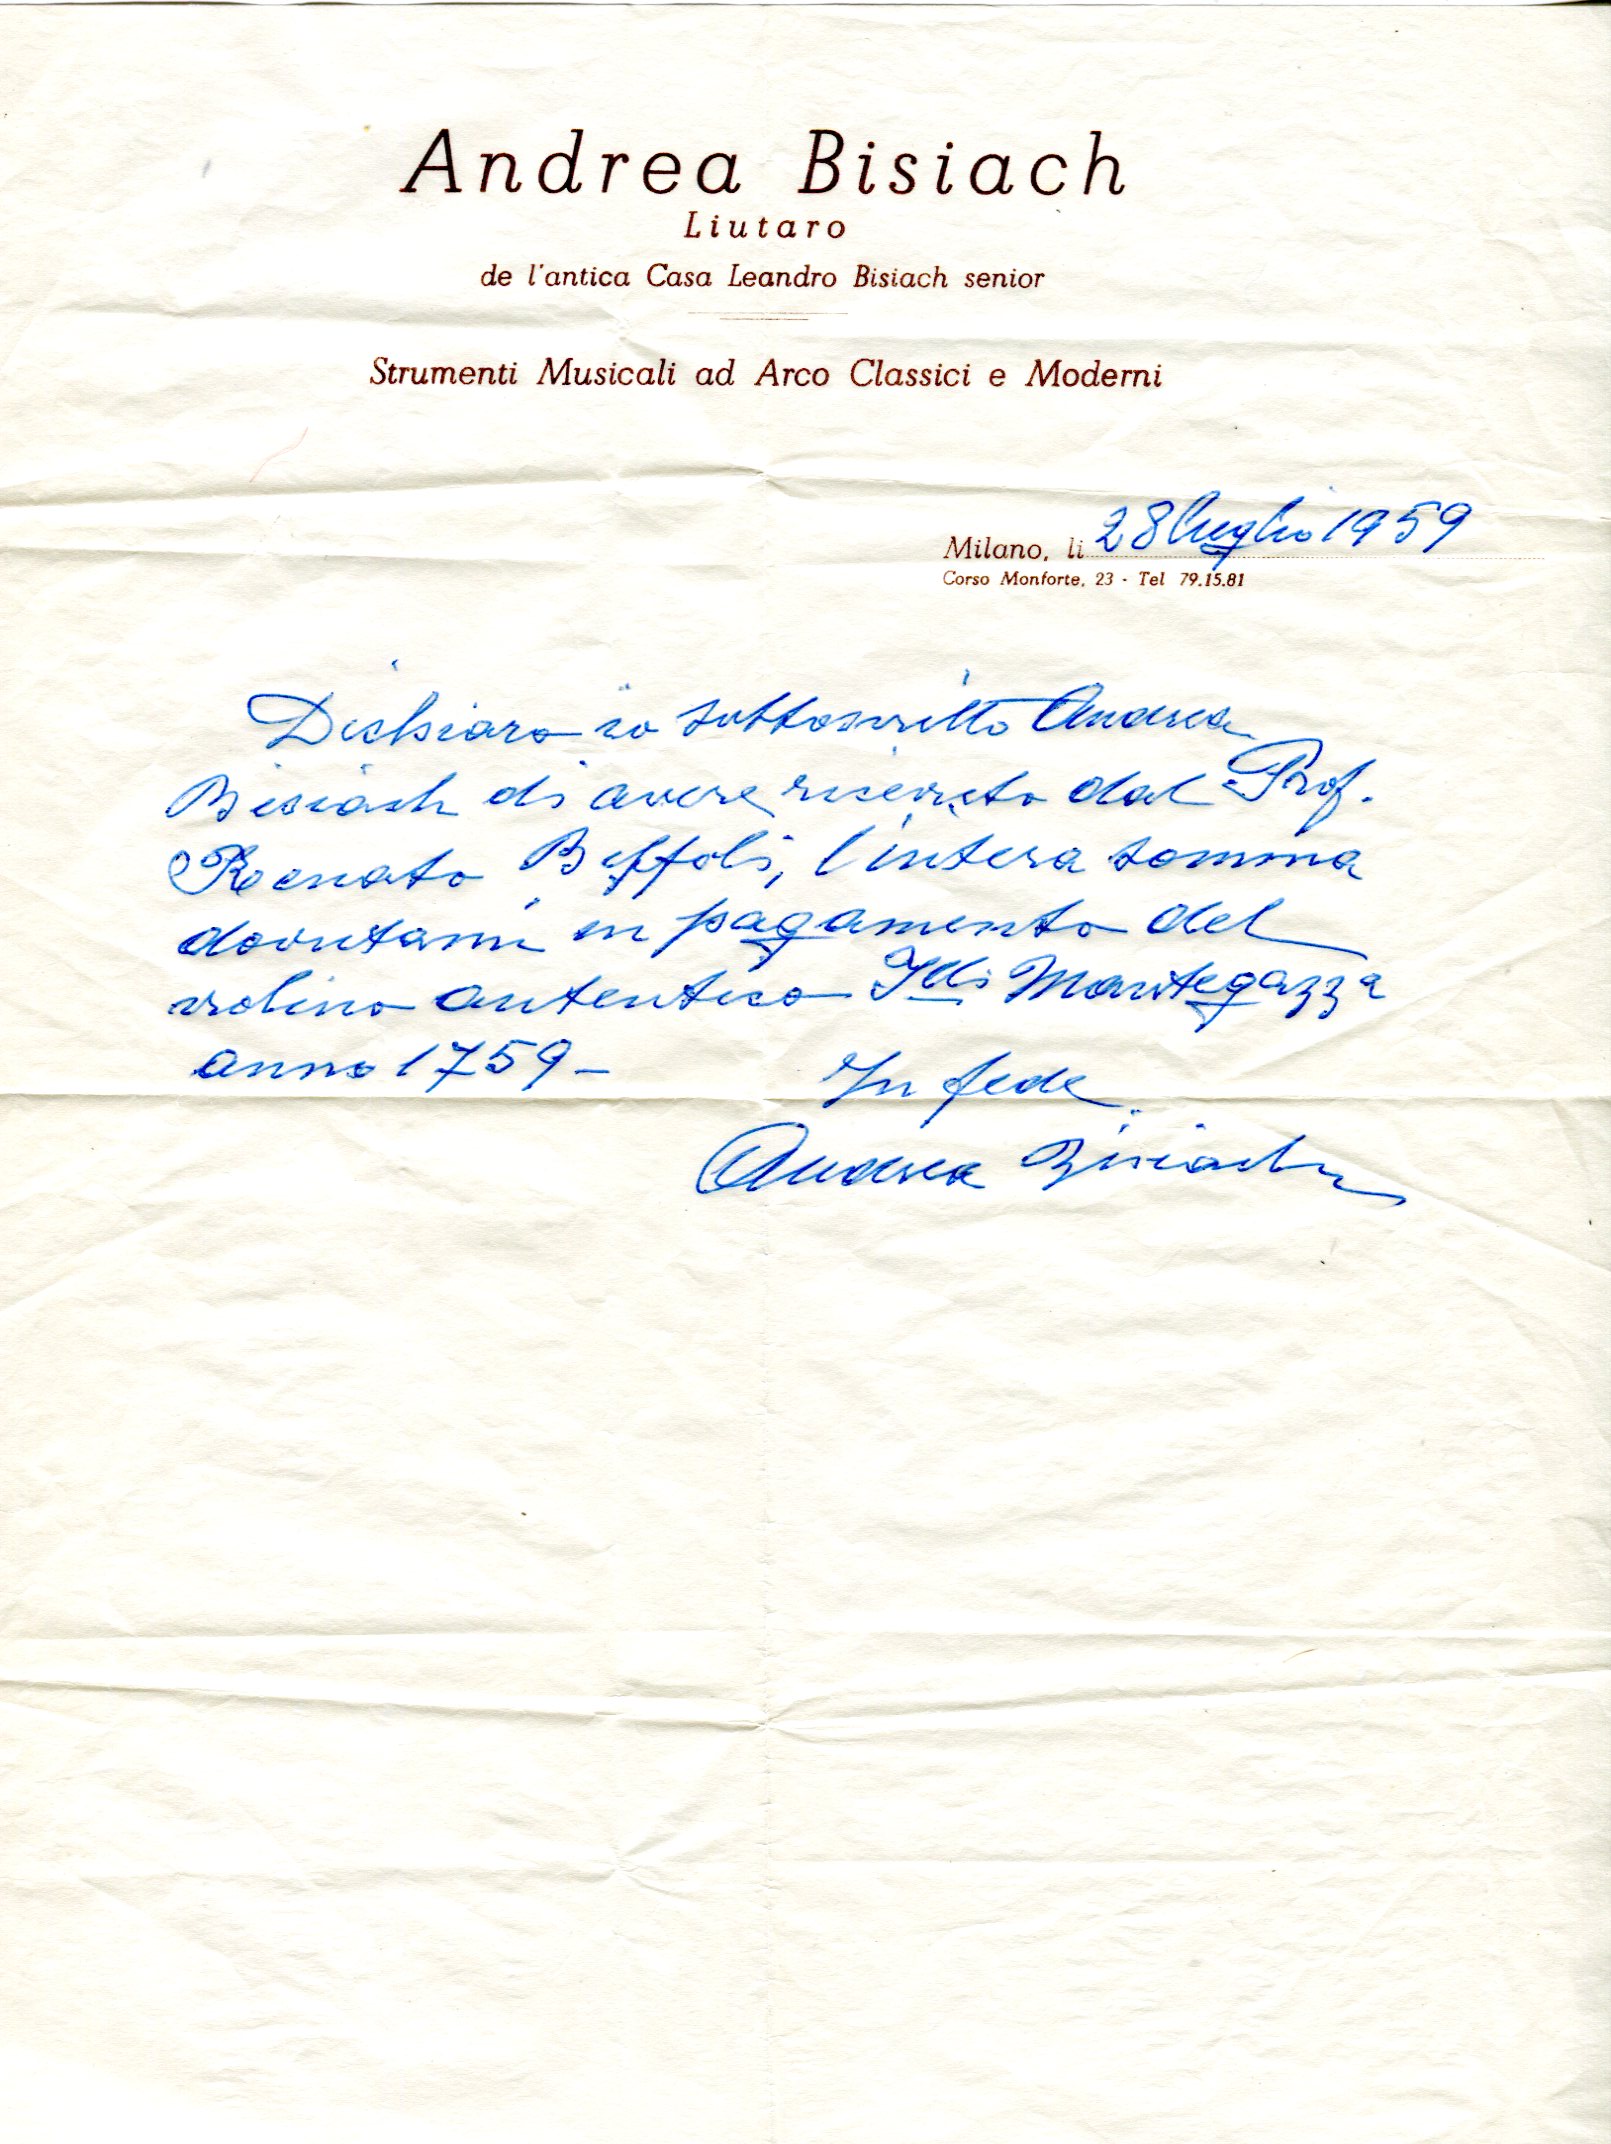 Andrea Bisiach
Liutaro
de l'antica Casa Leandro Bisiach senior
Strumenti Musicali ad Arco Classici e Moderni
Milano, li 28 luglio 1959
Corso Monforte, 23 - Tel 79.15.81
Dichiaro io sottoscritto Andrea
Bisiach di avere ricevuto dal Prof.
Renato Biffoli, l'intera somma
dovutami in pagamento del
violino autentico Flli Mantegazza
anno 1759 -
In fede
Andrea Bisiach